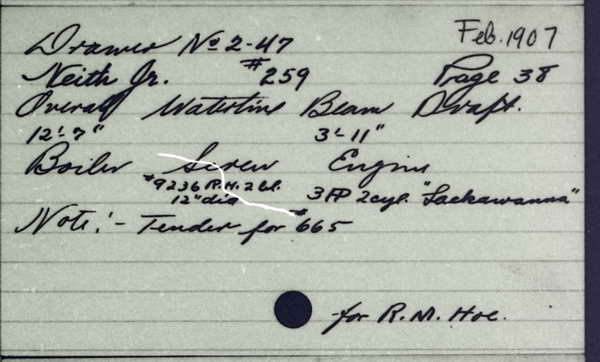 Feb. 1907
Drawer No 2-47
Neith Jr. #259 Page 38
Overall Waterline Beam Draft.
12'-7" 3'-11"
Boiler Screw Engine
#9236 R.H. 2 bl. 3 HP 2 cyl. "Lackawanna"
12" dia
Note:- Tender for #665
for R. M. Hoe.